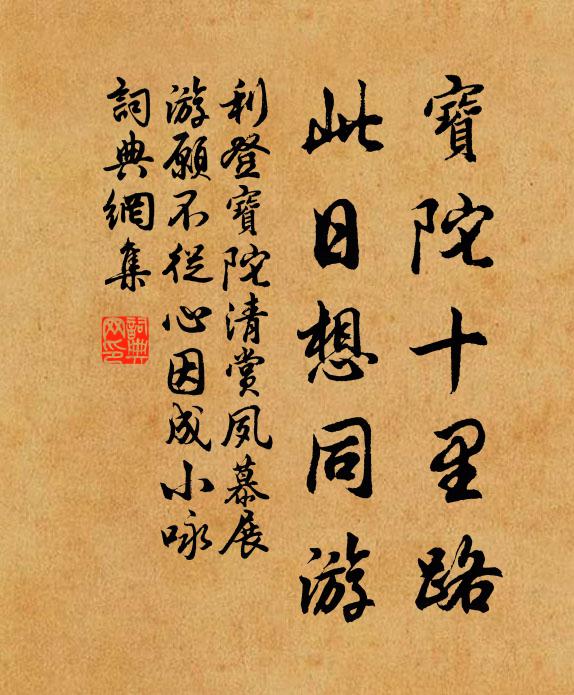 寶陀十里路
此日想同游
利登寶陀清賞夙慕展
游願不從心因成小咏
詞典網集
詞典网印